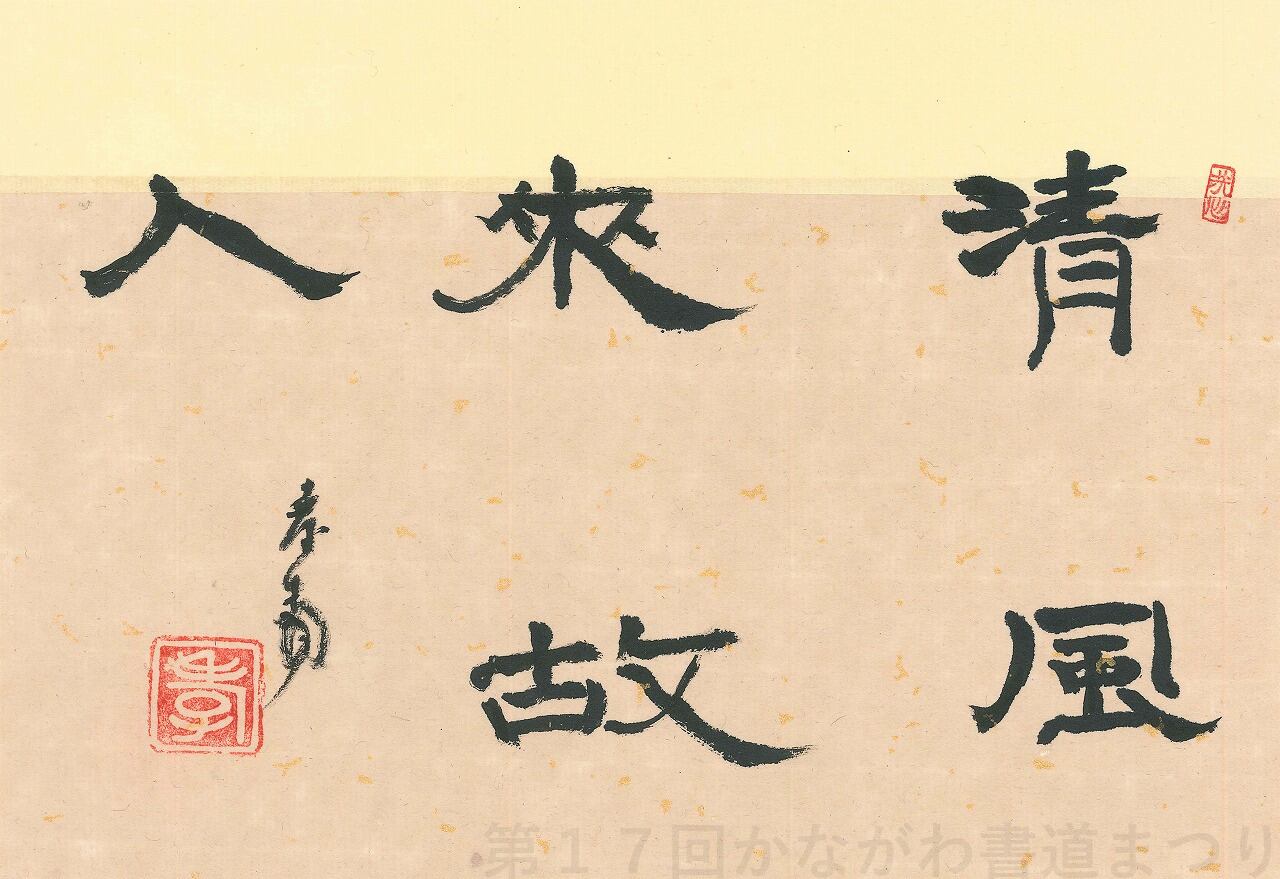 清風
來故
人
第１７回かながわ書道まつり